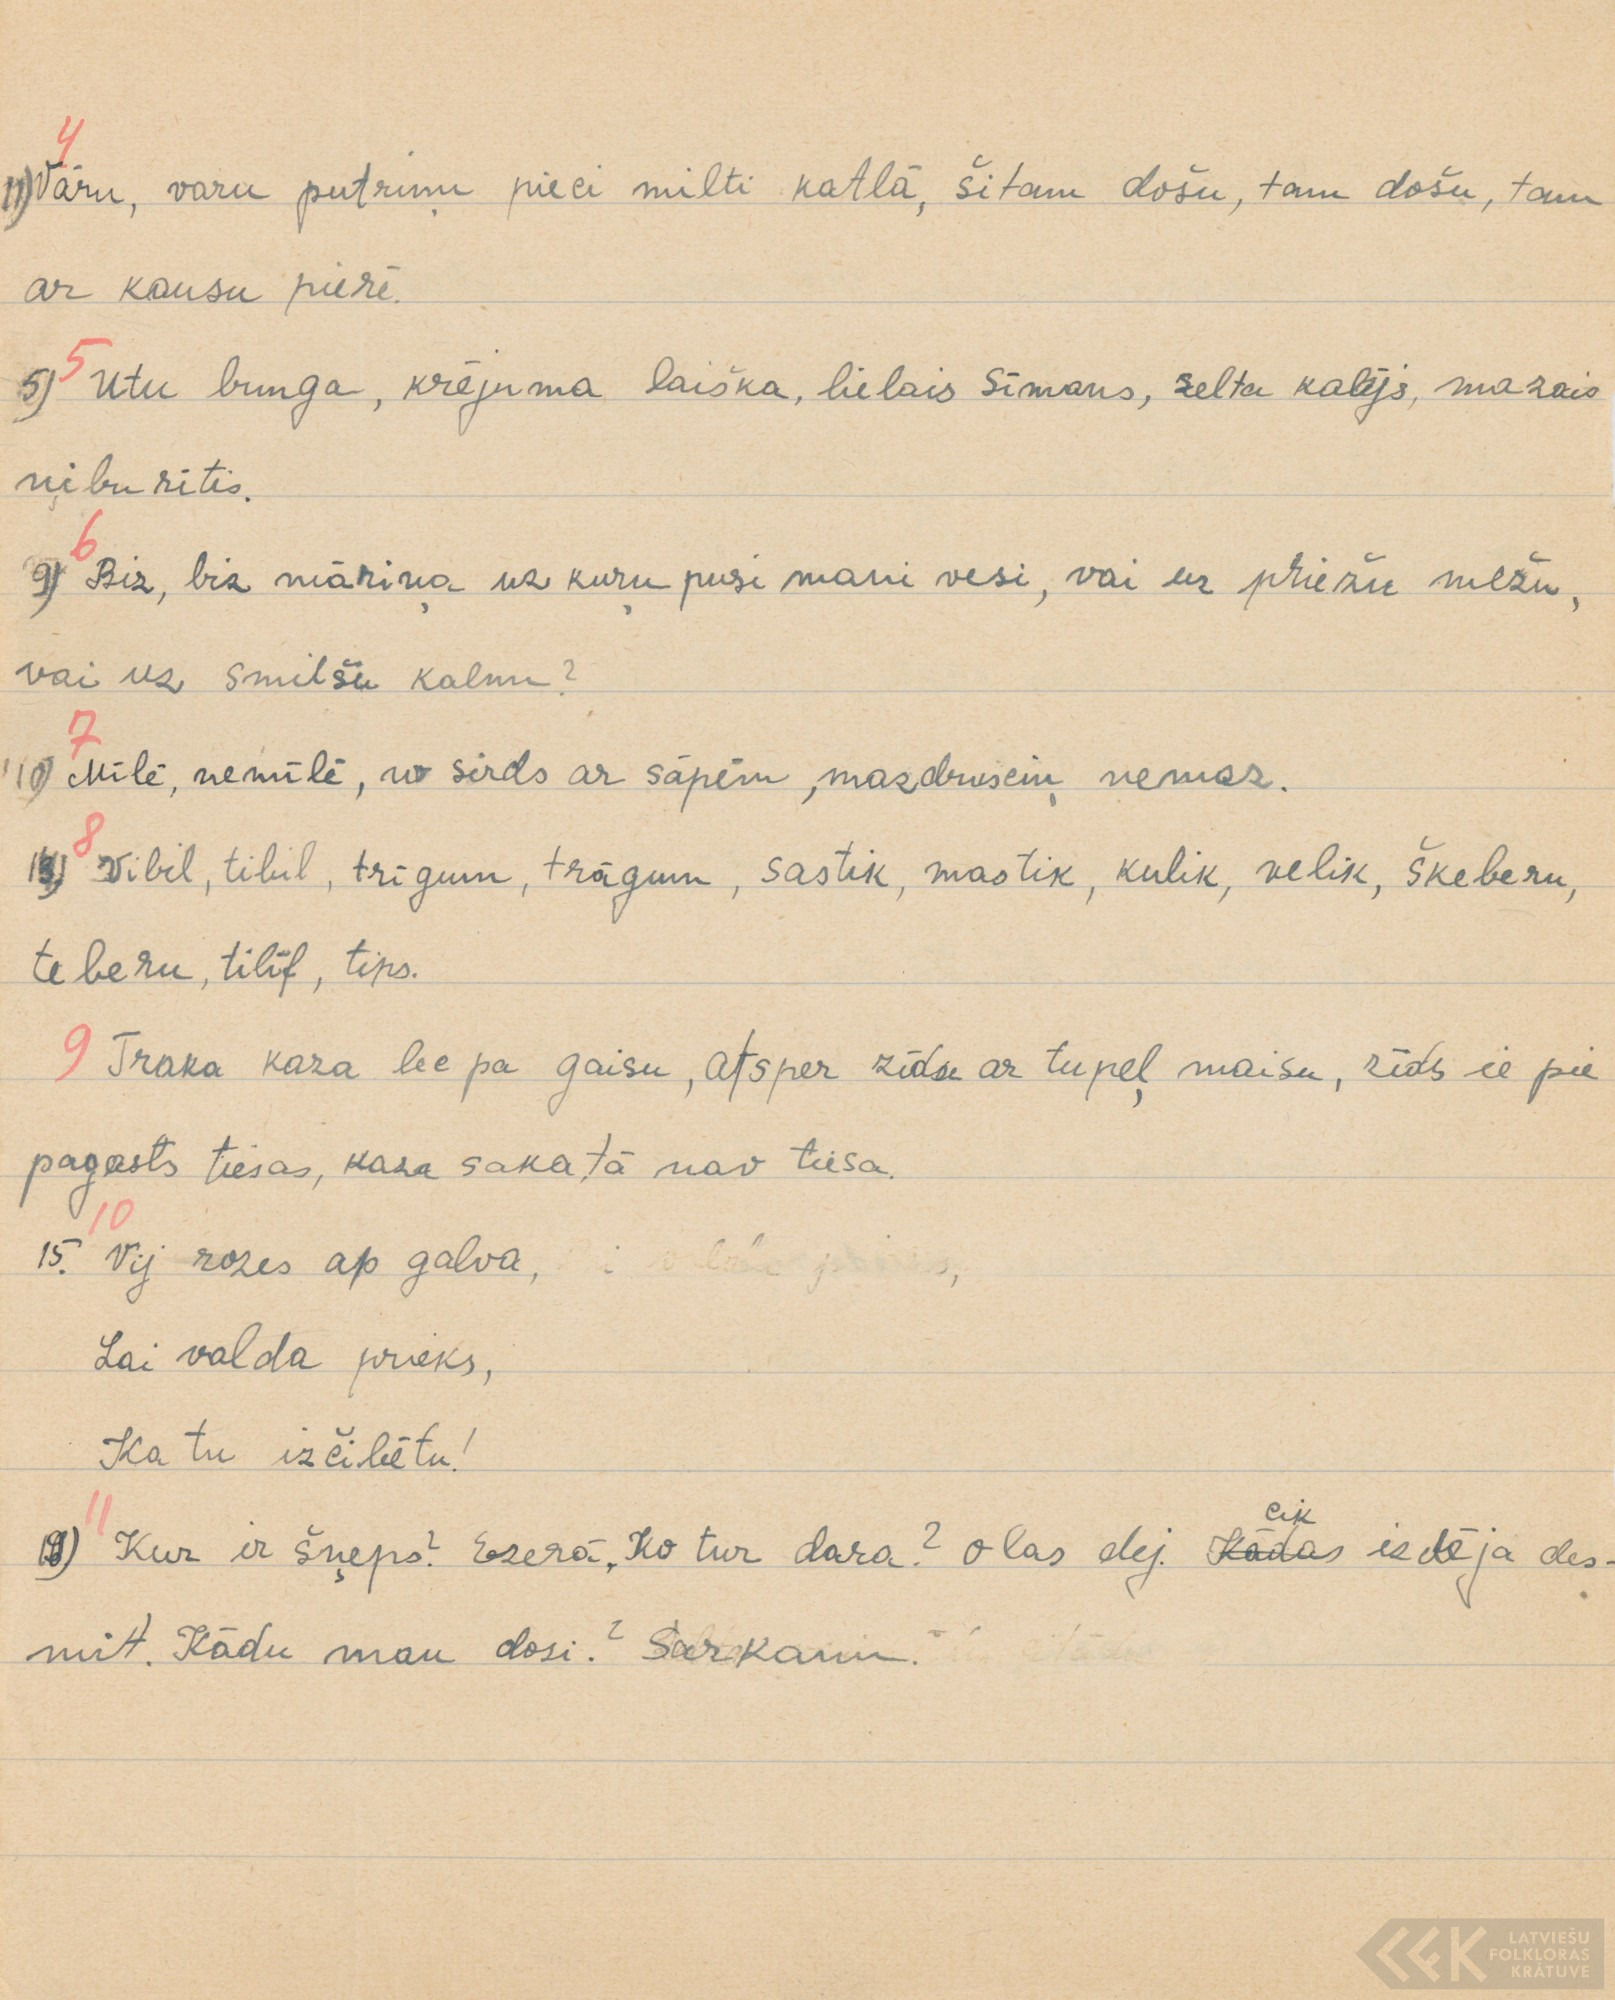 4
11) Vāru, varu putriņu pieci milti katlā, šitam došu, tam došu, tam
ar kausu pierē.
5) 5 Utu bunga, krējuma laiška, lielais Sīmans, zelta kalējs, mazais
ņiburītis.
6
9) Biz, biz māriņa uz kuŗu pusi mani vesi, vai uz priežu mežu,
vai uz smilšu kalnu?
7
10) Mīlē, nemīlē, no sirds ar sāpēm, mazdrusciņ nemaz.
8
Vibil, tibil, trīgum, trāgum, sastik, mastik, kulik, velik, škeberu,
teberu, tilīf, tips.
9 Traka kaza lec pa gaisu, atsper zīdu ar tupeļ maisu, zīds ie pie
pagasts tiesas, kaza saka tā nav tiesa.
10
15. Vij rozes ap galva,
Lai valda prieks,
Ka tu izčibētu!
11 cik
Kur ir šņeps? Ezerā, Ko tur dara? olas dej. Kādas izdēja des-
mit. Kādu man dosi? Sarkanu.
LATVIEŠU
FOLKLORAS
KRĀTUVE